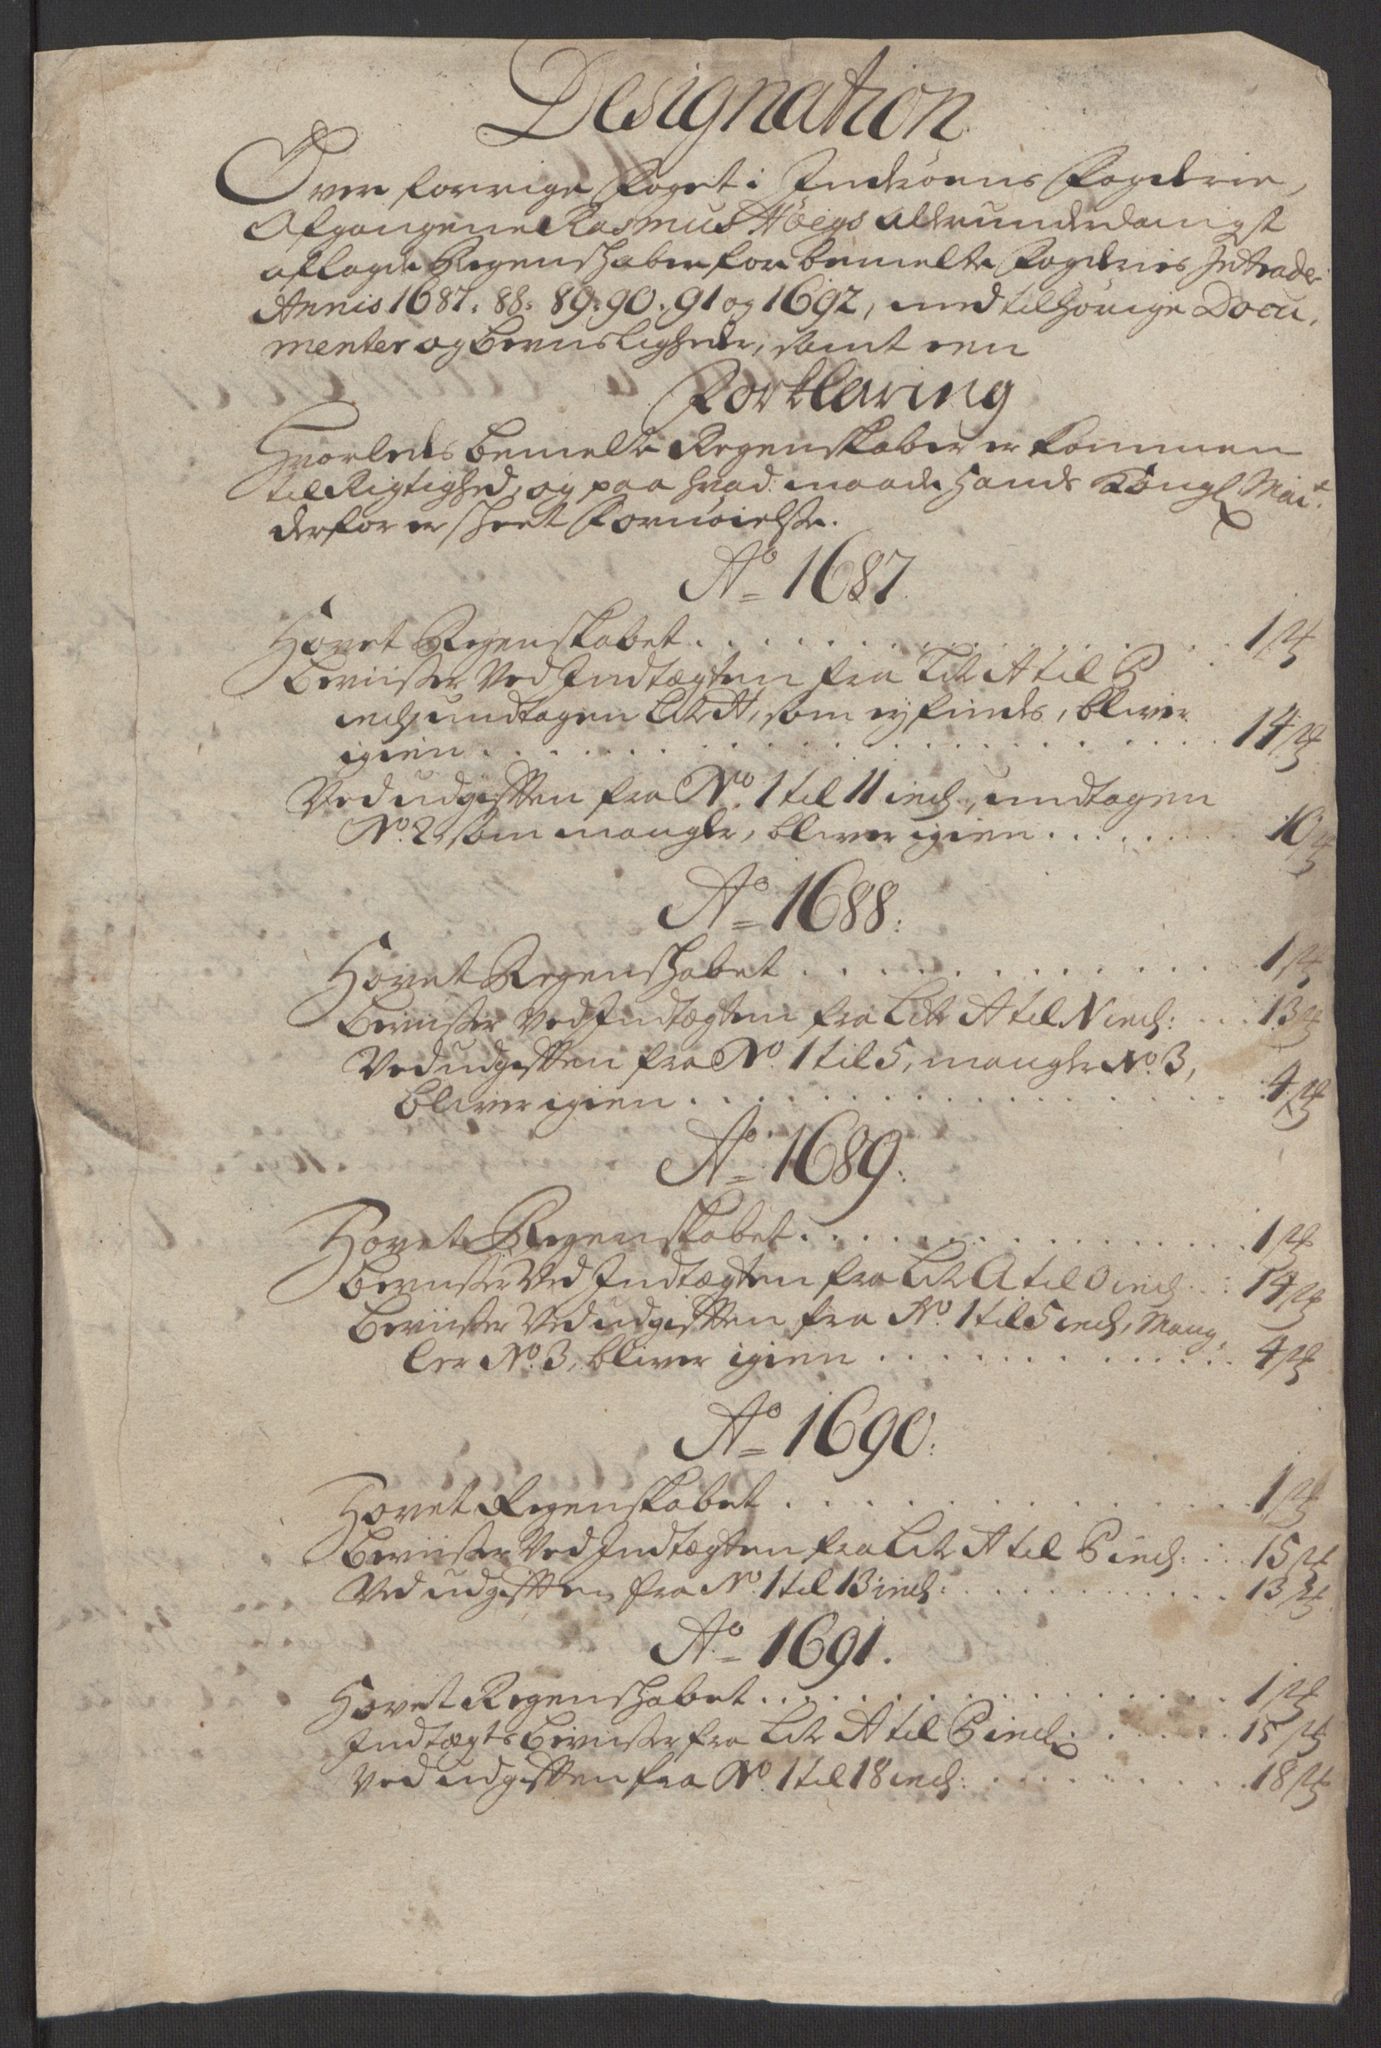 Designation
Over forrige Foget i Inderöens Fogderie,
Afgangene Rasmus Höegs allerunderdanigst
aflagde Regenskaber for bemelte Fogderies Intrader
Annis 1687. 88. 89. 90. 91 og 1692, med tilhörige Docu,
menter og beviisligheder, samt een
Forklaring
Hvorledes bemelte Regenskaber er kommen
til Rigtighed, og paa hvad maade Hands Kongl Mait
derfor er skeet Fornöielse.
Ao 1687.
Hovet Regenskabet . . . 1 st
Beviiser Ved Indtægten fra Litr A til P
incl, undtagen Litr H, som ey findes, bliver
igien . . . 14 st
Ved udgifften fra No. 1 til 11 incl, undtagen
No. 2 som mangler, bliver igien . . . 10 st
Ao 1688:
Hovet Regenskabet . . . 1 st
Beviiser Ved Indtægten fra Litr A til N incl: . . 13 st
Ved udgifften fra No. 1 til 5, mangler No. 3,
bliver igien . . . 4 st
Ao 1689:
Hovet Regenskabet . . . 1 st
Beviiser Ved Indtægten fra Litr A til O incl . : 14 st
Beviiser Ved udgifften fra No. 1 til 5 incl, Mang,
ler No. 3, bliver igien . . . 4 st
Ao 1690:
Hovet Regenskabet . . . 1 st
Beviiser Ved Indtægten fra Litr A til P incl: . . 15 st
Ved udgifften fra No. 1 til 13 incl: . . . 13 st
Ao 1691.
Hovet Regenskabet . . . 1 st
Indtægts Beviiser fra Litr A til P incl: . . . 15 st
Ved udgifften fra No. 1 til 18 incl: . . . 18 st